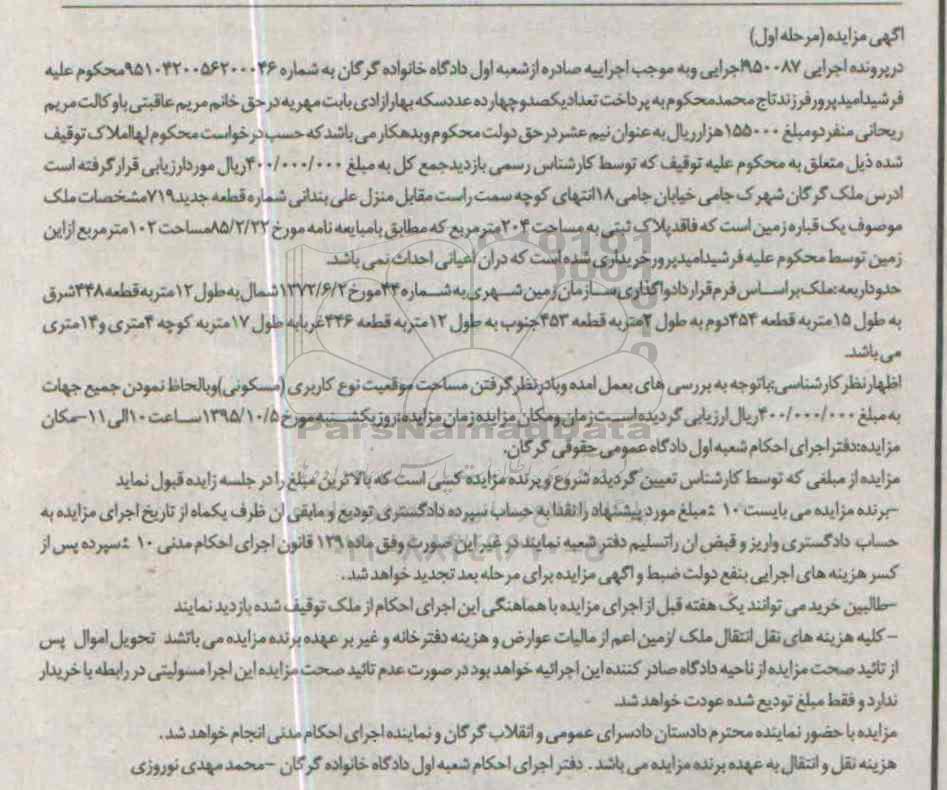 اگهی مزایده (مرحله اول)
درپرونده اجرایی ۹۵۰۰۸۷اجرایی وبه موجب اجراییه صادره ازشعبه اول دادگاه خانواده گرگان به شماره ۹۵۱۰۴۲۰۰۵۶۲۰۰۰۴۶محکوم علیه
فرشیدامیدپرورفرزندتاج محمدمحکوم به پرداخت تعدادیکصدوچهارده عددسکه بهارازادی بابت مهریه درحق خانم مریم عاقبتی باوکالت مریم
ریحانی منفردومبلغ ۱۵۵۰۰۰هزارریال به عنوان نیم عشردرحق دولت محکوم وبدهکارمی باشدکه حسب درخواست محکوم لهااملاک توقیف
شده ذیل متعلق به محکوم علیه توقیف که توسط کارشناس رسمی بازدیدجمع کل به مبلغ ۴۰۰/۰۰۰/۰۰۰ریال موردارزیابی قرارگرفته است
ادرس ملک گرگان شهرک جامی خیابان جامی۱۸انتهای کوچه سمت راست مقابل منزل علی بندانی شماره قطعه جدید۷۱۹مشخصات ملک
موصوف یک قباره زمین است که فاقدپلاک ثبتی به مساحت ۲۰۴مترمربع که مطابق بامبایعه نامه مورخ ۸۵/۲/۲۲مساحت ۱۰۲مترمربع ازاین
زمین توسط محکوم علیه فرشیدامیدپرورخریداری شده است که دران اعیانی احداث نمی باشد.
حدوداربعه:ملک براساس فرم قراردادواگذاری سازمان زمین شهری به شماره ۴۴مورخ ۱۳۷۲/۶/۲شمال به طول ۱۲متربه قطعه ۴۴۸شرق
به طول ۱۵متربه قطعه ۴۵۴دوم به طول ۲متربه قطعه ۴۵۳جنوب به طول ۱۲متربه قطعه ۴۴۶غربابه طول ۱۷متربه کوچه ۴متری و۱۴متری
می باشد.
اظهارنظرکارشناسی:باتوجه به بررسی های بعمل امده وبادرنظرگرفتن مساحت موقعیت نوع کاربری (مسکونی)وبالحاظ نمودن جمیع جهات
به مبلغ ۴۰۰/۰۰۰/۰۰۰ریال ارزیابی گردیده است زمان ومکان مزایده زمان مزایده:روزیکشنبه مورخ ۱۳۹۵/۱۰/۵ساعت ۱۰الی ۱۱-مکان
مزایده:دفتراجرای احکام شعبه اول دادگاه عمومی حقوقی گرگان.
مزایده از مبلغی که توسط کارشناس تعیین گردیده شروع وبرنده مزایده کسی است که بالاترین مبلغ را در جلسه زایده قبول نماید
-برنده مزایده می بایست ۱۰ ٪مبلغ مورد پیشنهاد را نقدا به حساب سپرده دادگستری تودیع و مابقی ان ظرف یکماه از تاریخ اجرای مزایده به
حساب دادگستری واریز و قبض ان راتسلیم دفتر شعبه نمایند در غیر این صورت وفق ماده ۱۲۹ قانون اجرای احکام مدنی ۱۰ ٪سپرده پس از
کسر هزینه های اجرایی بنفع دولت ضبط و اگهی مزایده برای مرحله بعد تجدید خواهد شد.
-طالبین خرید می توانند یک هفته قبل از اجرای مزایده با هماهنگی این اجرای احکام از ملک توقیف شده بازدید نمایند
- کلیه هزینه های نقل انتقال ملک /زمین اعم از مالیات عوارض و هزینه دفترخانه و غیر بر عهده برنده مزایده می باتشد تحویل اموال پس
از تائید صحت مزایده از ناحیه دادگاه صادر کننده این اجرائیه خواهد بود در صورت عدم تائید صحت مزایده این اجرا مسولیتی در رابطه با خریدار
ندارد و فقط مبلغ تودیع شده عودت خواهد شد.
مزایده با حضور نماینده محترم دادستان دادسرای عمومی و انقلاب گرگان و نماینده اجرای احکام مدنی انجام خواهد شد.
هزینه نقل و انتقال به عهده برنده مزایده می باشد. دفتر اجرای احکام شعبه اول دادگاه خانواده گرگان -محمد مهدی نوروزی
ParsNamadData